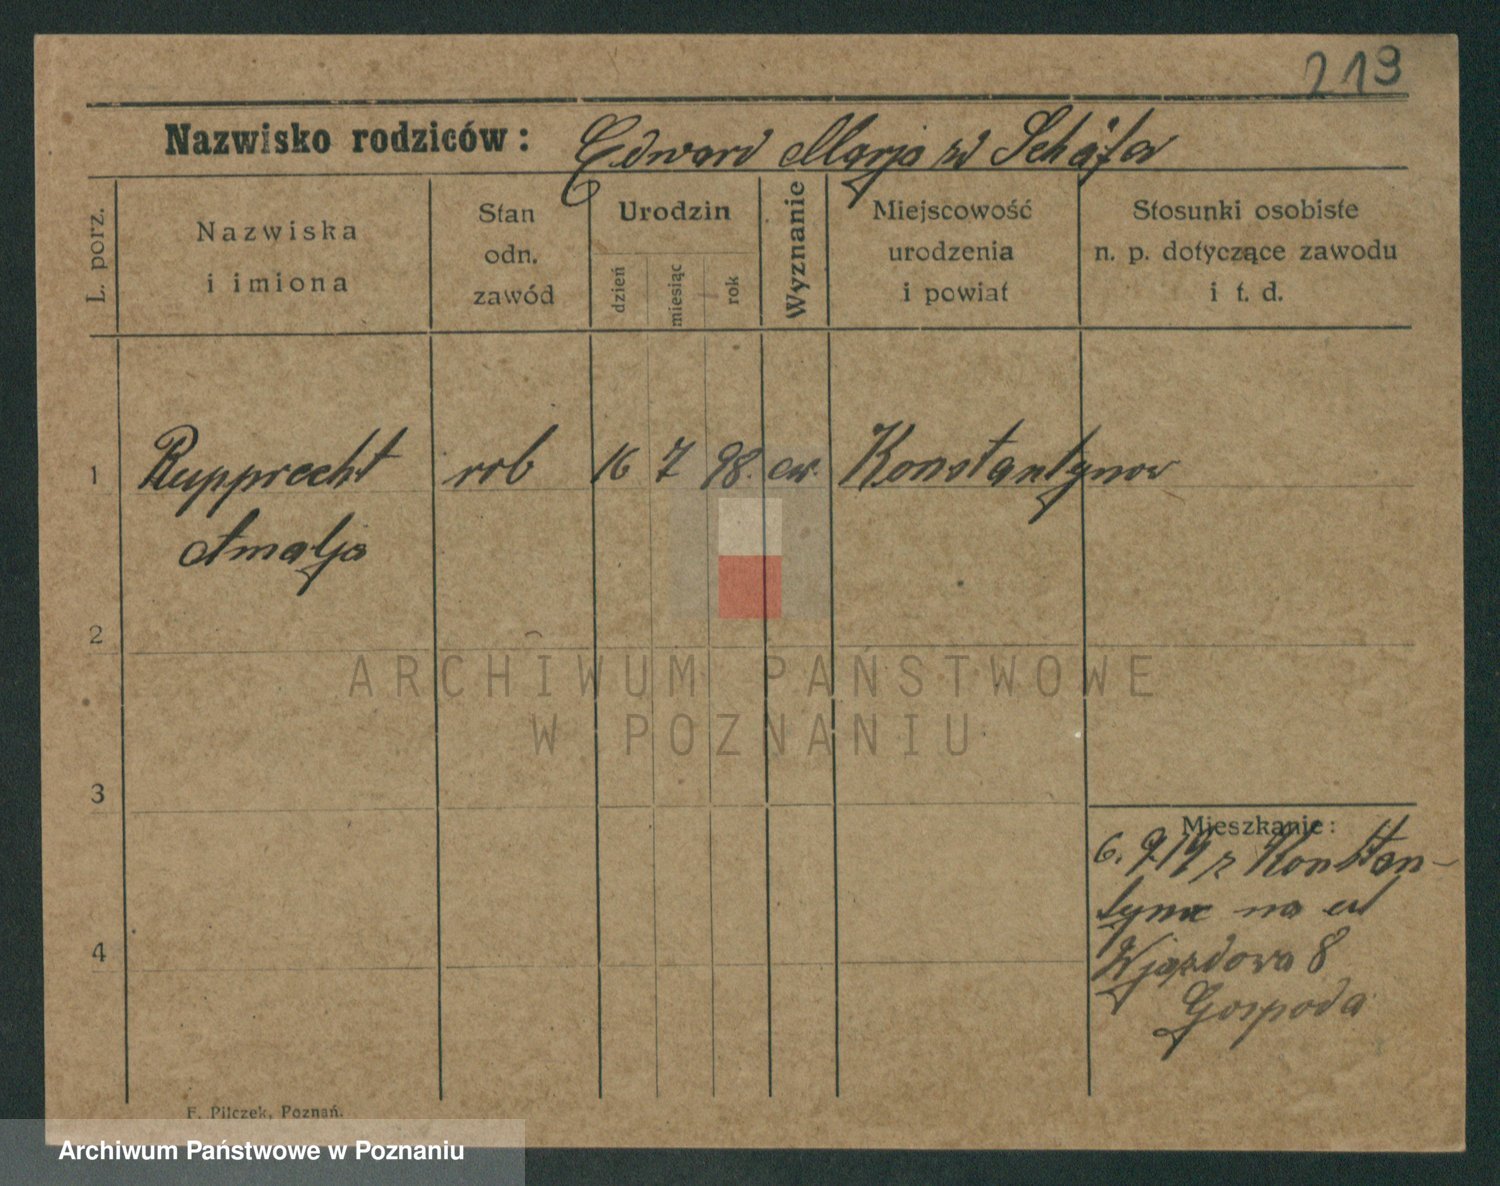 213
Nazwisko rodziców: Edward Marja zd Schäfer
L. porz.
Nazwiska
i imiona
Stan
odn.
zawód
Urodzin
dzień
miesiąc
rok
Wyznanie
Miejscowość
urodzenia
i powiat
Stosunki osobiste
n. p. dotyczące zawodu
i t. d.
1 Rupprecht rob 16 7 98. ew. Konstantynow
Amalja
2
ARCHIWUM PAŃSTWOWE
W POZNANIU
3
Mieszkanie:
6. 9 19 z Konstan-
tyna na ul
Wjazdowa 8
4
Gospoda
F. Pilczek, Poznań.
Archiwum Państwowe w Poznaniu